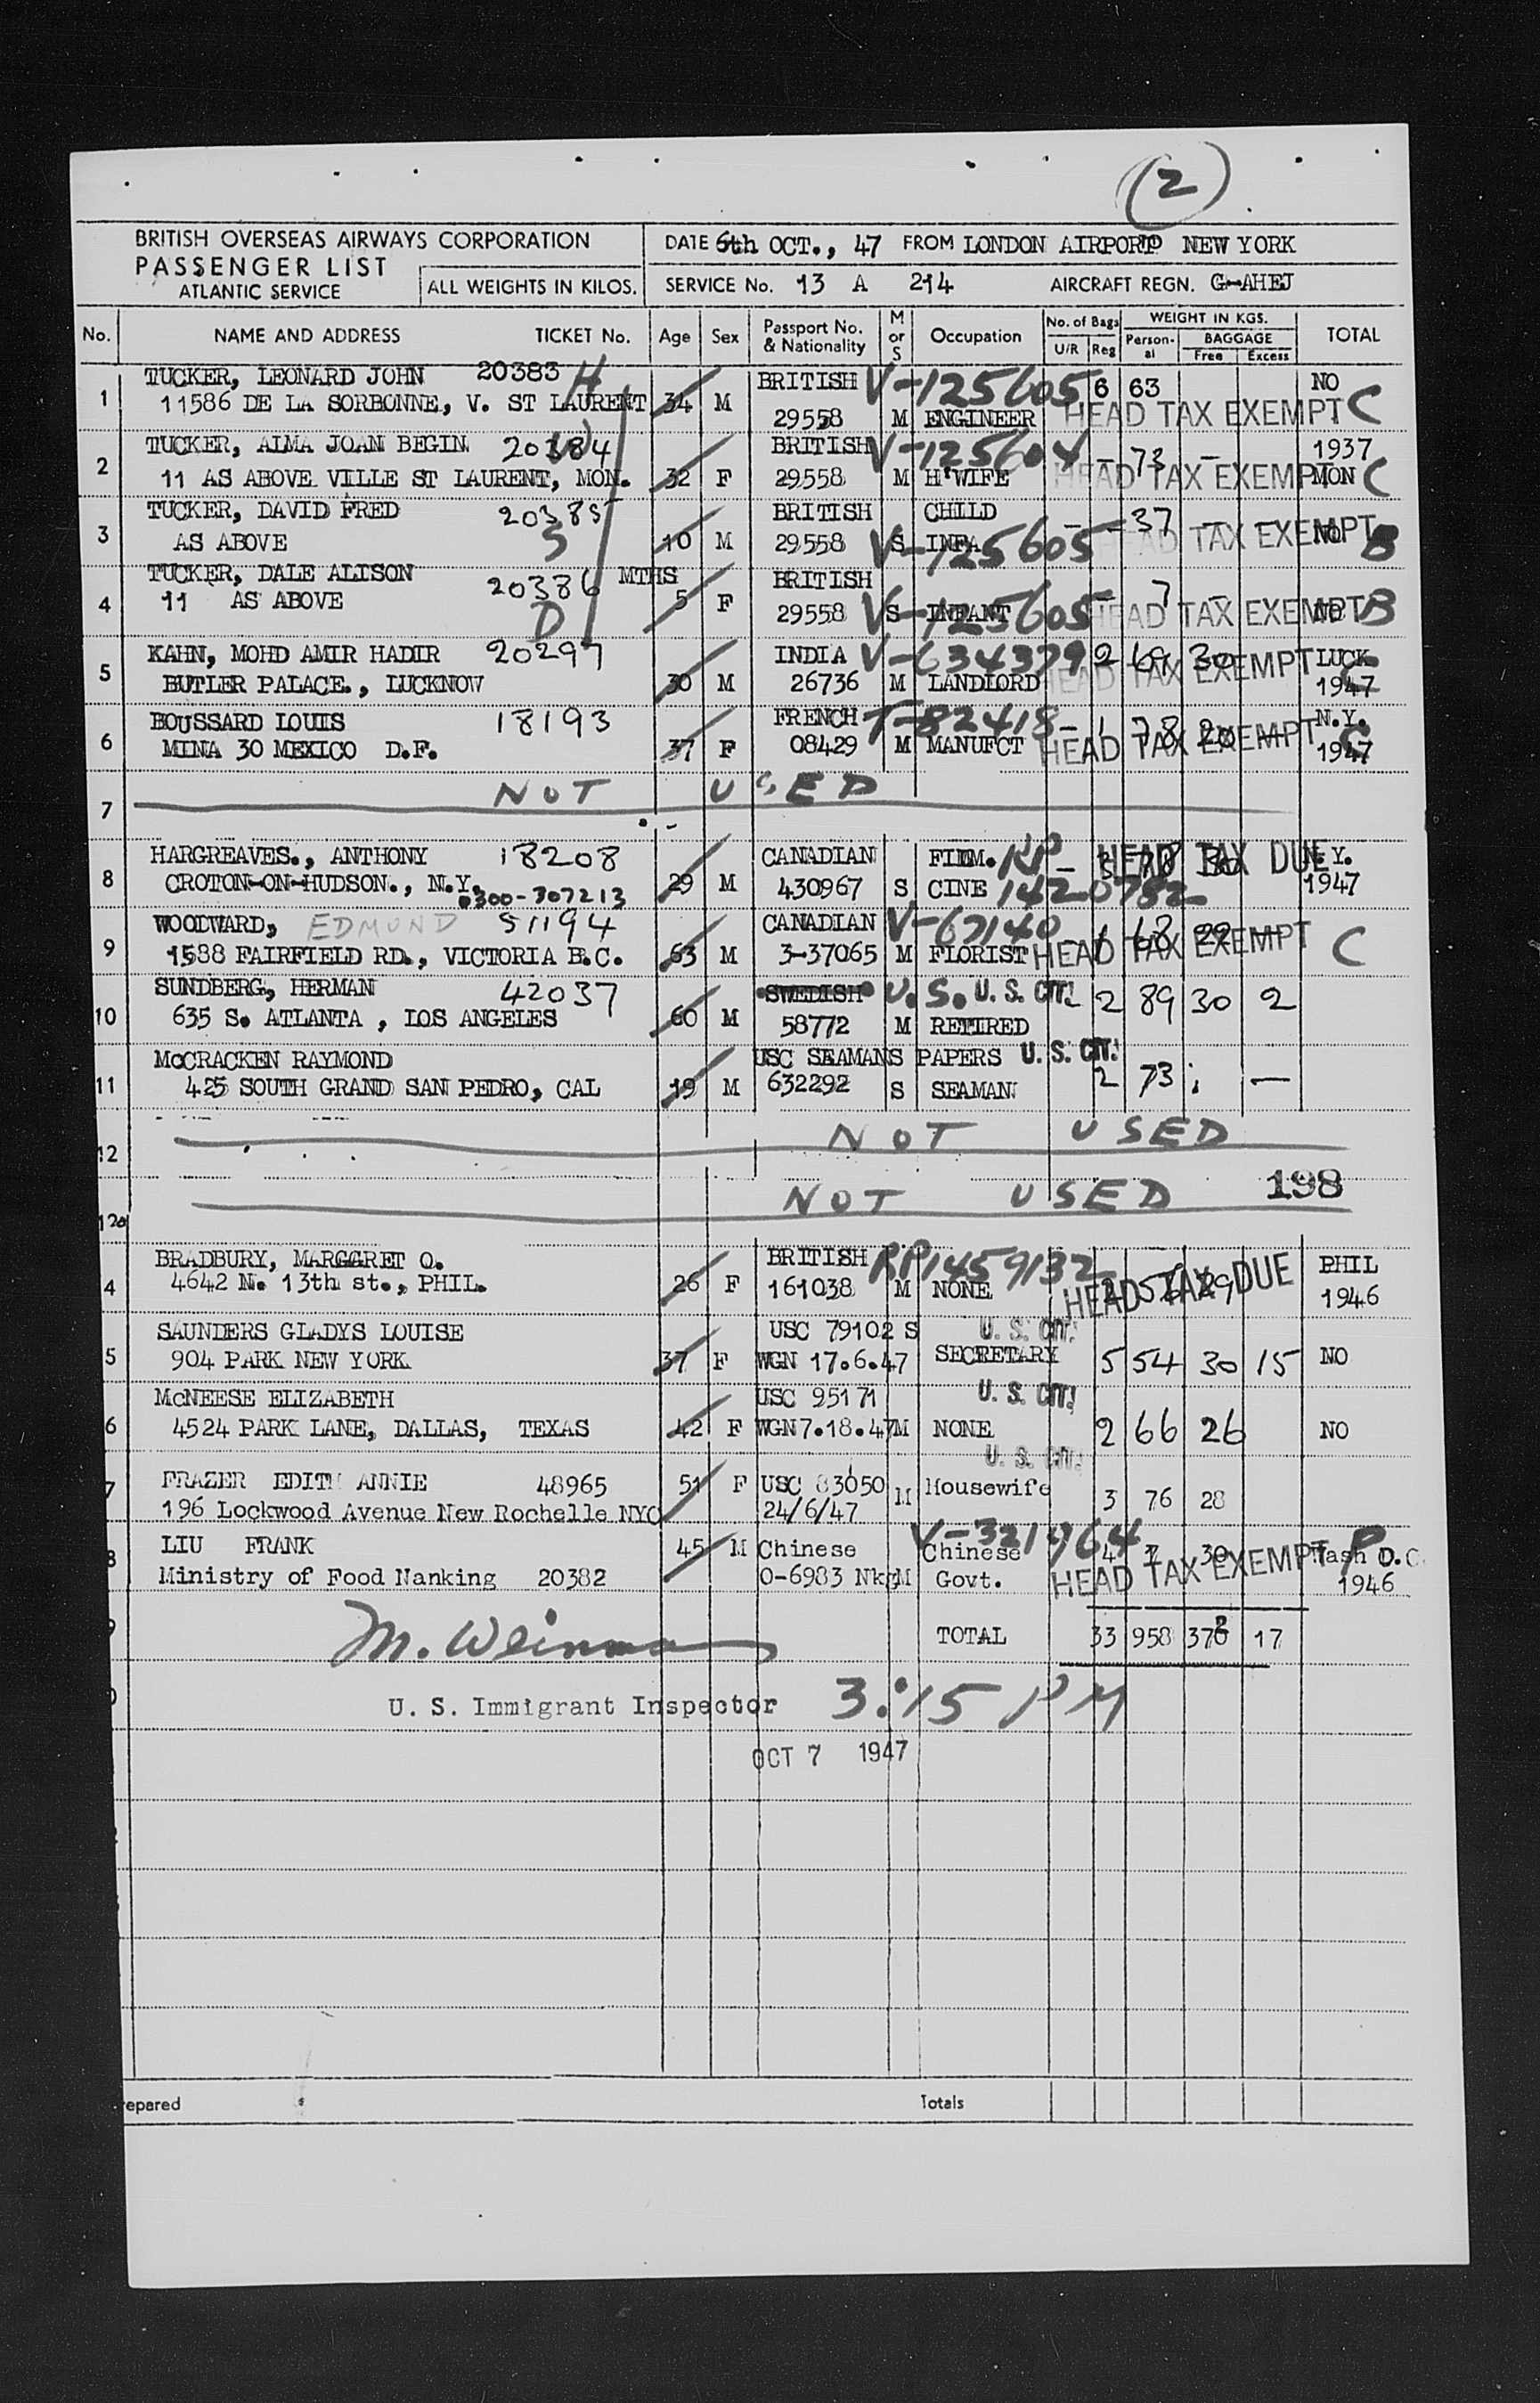 (2)
BRITISH OVERSEAS AIRWAYS CORPORATION
PASSENGER LIST
ATLANTIC SERVICE
ALL WEIGHTS IN KILOS.
DATE 6th OCT., 47 FROM LONDON AIRPORT NEW YORK
SERVICE No. 13 A 214 AIRCRAFT REGN. G-AHEJ
No. NAME AND ADDRESS TICKET No. Age Sex Passport No. & Nationality M or S Occupation No. of Bags U/R Reg WEIGHT IN KGS. Person-al BAGGAGE Free Excess TOTAL
TUCKER, LEONARD JOHN 20383 H BRITISH V-125605 6 63 NO
1 11586 DE LA SORBONNE, V. ST LAURENT 34 M 29558 M ENGINEER HEAD TAX EXEMPT C
TUCKER, ALMA JOAN BEGIN 20384 BRITISH V-125604 - 73 - 1937
2 11 AS ABOVE VILLE ST LAURENT, MON. 32 F 29558 M H'WIFE HEAD TAX EXEMPT MON C
TUCKER, DAVID FRED 20385 BRITISH CHILD - - 37 -
3 AS ABOVE S 10 M 29558 S INFA V-125605 HEAD TAX EXEMPT NO B
TUCKER, DALE ALISON 20386 MTHS BRITISH - 7 -
4 11 AS ABOVE D 5 F 29558 S INFANT V-125605 HEAD TAX EXEMPT NO B
KAHN, MOHD AMIR HADIR 20297 INDIA V-634379 2 30 LUCK
5 BUTLER PALACE., LUCKNOW 30 M 26736 M LANDLORD HEAD TAX EXEMPT 1947 C
BOUSSARD LOUIS 18193 FRENCH T-82418 - 1 78 20 N.Y.
6 MINA 30 MEXICO D.F. 37 F 08429 M MANUFCT HEAD TAX EXEMPT 1947 C
7 NOT USED
HARGREAVES., ANTHONY 18208 CANADIAN FILM. RP - 3 78 30 HEAD TAX DUE N.Y.
8 CROTON-ON-HUDSON., N.Y. 0300-307213 29 M 430967 S CINE 1420782 1947
WOODWARD, EDMUND 51194 CANADIAN V-67140 1
9 1588 FAIRFIELD RD., VICTORIA B.C. 63 M 3-37065 M FLORIST HEAD TAX EXEMPT C
SUNDBERG, HERMAN 42037 SWEDISH U.S. U. S. CIT. 2 89 30 2
10 635 S. ATLANTA , LOS ANGELES 60 M 58772 M RETIRED
McCRACKEN RAYMOND USC SEAMANS PAPERS U. S. CIT.
11 425 SOUTH GRAND SAN PEDRO, CAL 19 M 632292 S SEAMAN 2 73 —
12 NOT USED
198
12a NOT USED
BRADBURY, MARGGRET O. BRITISH RP1459132 PHIL
4 4642 N. 13th st., PHIL. 26 F 161038 M NONE 2 56 29 HEAD TAX DUE 1946
SAUNDERS GLADYS LOUISE USC 79102 S U. S. CIT.
5 904 PARK NEW YORK 37 F WGN 17.6.47 SECRETARY 5 54 30 15 NO
McNEESE ELIZABETH USC 95171 U. S. CIT.
6 4524 PARK LANE, DALLAS, TEXAS 42 F WGN 7.18.47 M NONE 2 66 26 NO
U. S. CIT.
7 FRAZER EDITH ANNIE 48965 51 F USC 83050 M Housewife 3 76 28
196 Lockwood Avenue New Rochelle NYC 24/6/47
LIU FRANK 45 M Chinese V-321964 Chinese 4 30 Wash D.C. P
8 Ministry of Food Nanking 20382 0-6983 Nkg M Govt. HEAD TAX EXEMPT 1946
M. Weinman TOTAL 33 958 17
U. S. Immigrant Inspector 3:15 PM
OCT 7 1947
epared Totals